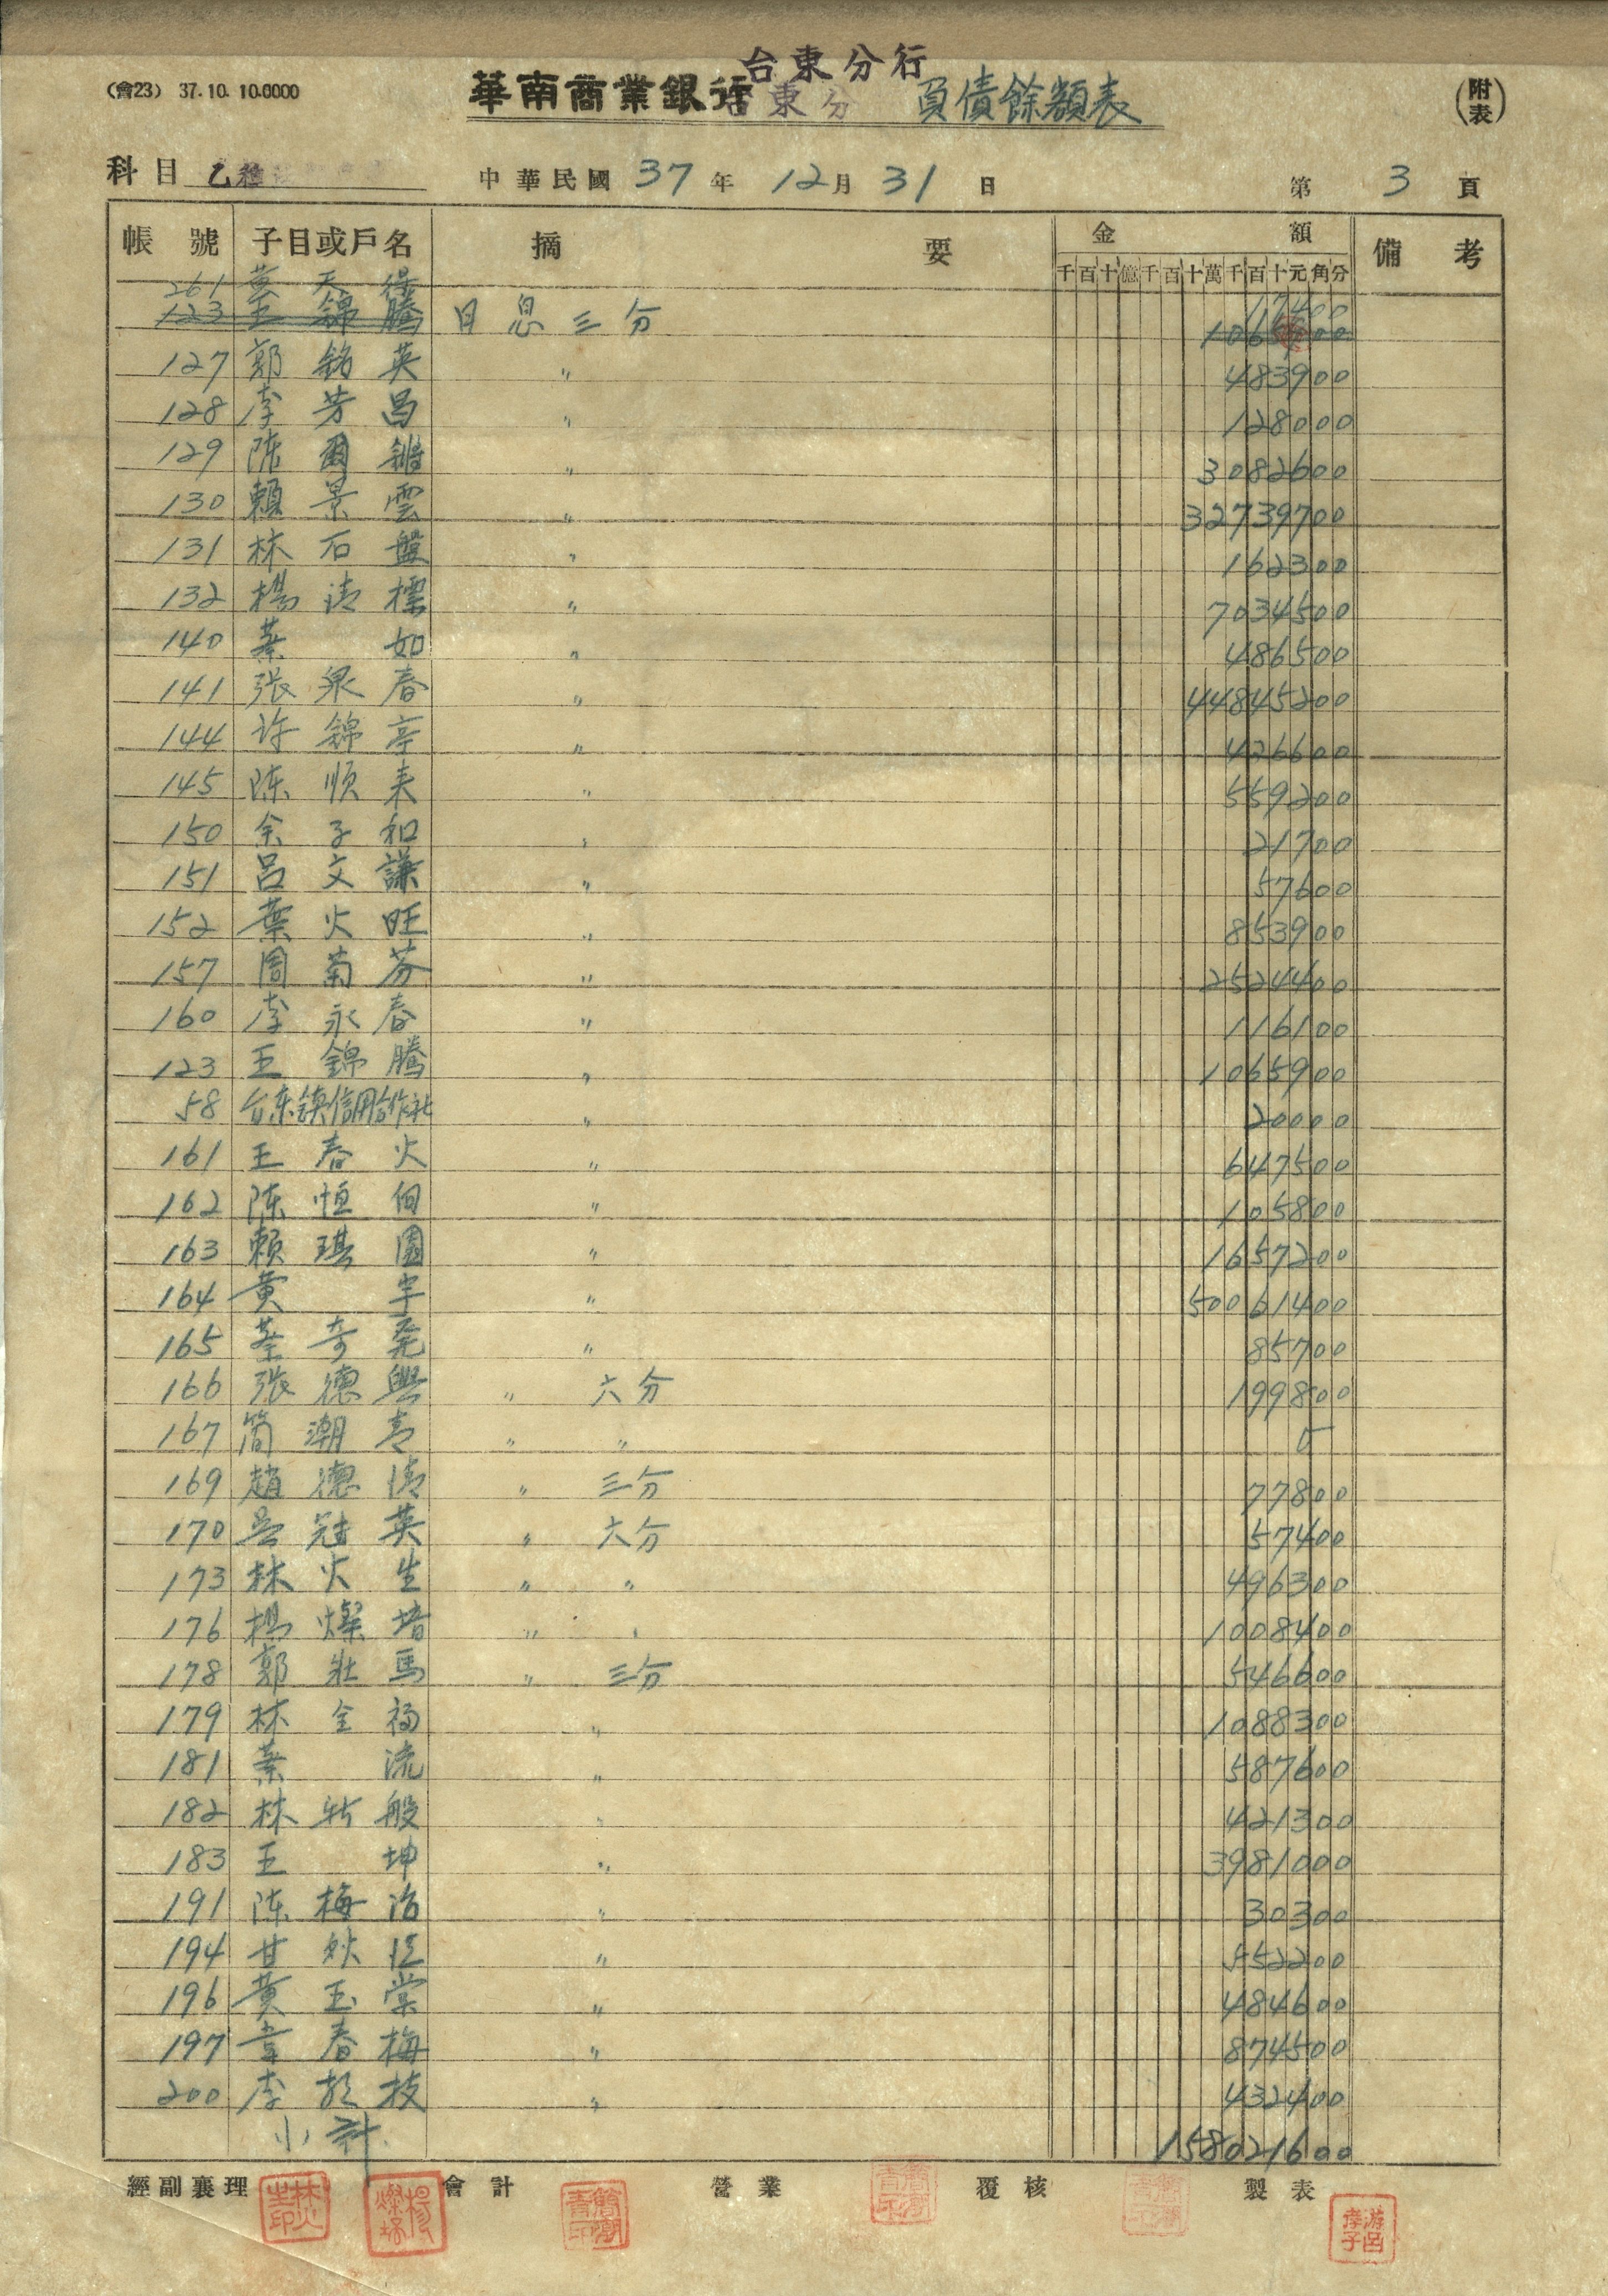 台東分行
(會23) 37.10.10.0000 華南商業銀行 台東分 負債餘額表 (附表)
科目 乙種 中華民國 37 年 12 月 31 日 第 3 頁
帳號 子目或戶名 摘要 金額 備考
千百十億千百十萬千百十元角分
261 黃天得 17400
123 王錦騰 日息三分 1065900
127 郭銘英 〃 483900
128 李芳昌 〃 128000
129 陳爾鏘 〃 3082600
130 賴景雲 〃 32739700
131 林石盤 〃 162300
132 楊清標 〃 7034500
140 葉如 〃 486500
141 張泉春 〃 44845200
144 许錦亭 〃 426600
145 陈順来 〃 559200
150 余子和 〃 21700
151 呂文謙 〃 57600
152 葉火旺 〃 853900
157 周菊芬 〃 2524400
160 李永春 〃 116100
123 王錦騰 〃 1065900
58 台东鎮信用合作社 〃 20000
161 王春火 〃 647500
162 陈恒佃 〃 105800
163 賴琪園 〃 1657200
164 黄宇 〃 50061400
165 奇 〃 85700
166 張德興 〃 六分 199800
167 简潮青 〃 〃 5
169 趙德清 〃 三分 77800
170 吳冠英 〃 六分 57400
173 林火生 〃 〃 496300
176 楊燦堦 〃 〃 1008400
178 郭壯馬 〃 三分 546600
179 林全福 〃 1088300
181 葉流 〃 587600
182 林新般 〃 421300
183 王坤 〃 3981000
191 陈梅治 〃 30300
194 甘秋 〃 552200
196 黄玉棠 〃 484600
197 韋春梅 〃 874500
200 李枝 〃 432400
小計 158021600
經副襄理 會計 營業 覆核 製表
林火生印 楊燦堦 簡潮青印 簡潮青印 簡潮青印 游呂孝子